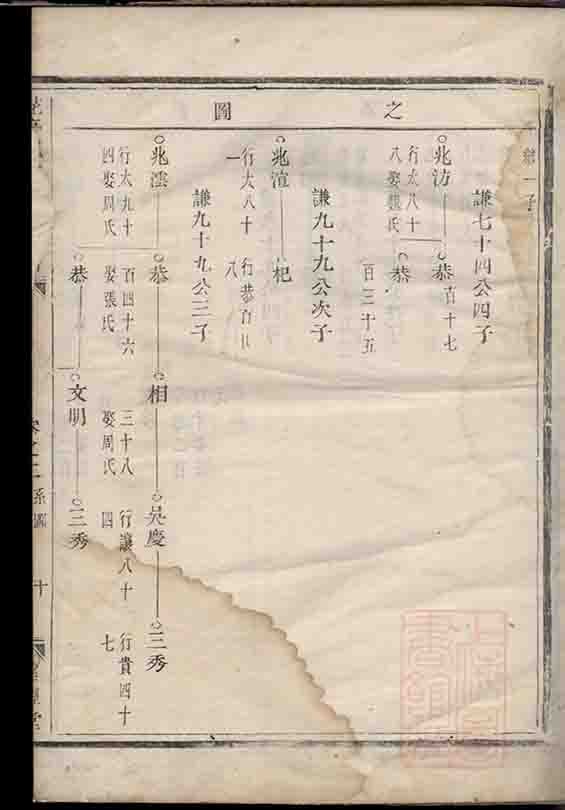 之圖
謙七十四公四子
兆汸
行太八十
八娶張氏
恭
百十七
恭
百三十五
謙九十九公次子
兆渲
行太八十
一
杞
行恭百
八
謙九十九公三子
兆澐
行太九十
四娶周氏
恭
百四十六
娶張氏
相
三十八
娶周氏
吳慶
行讓八十
四
三秀
行貴四十
七
恭
文明
三秀
系圖
十